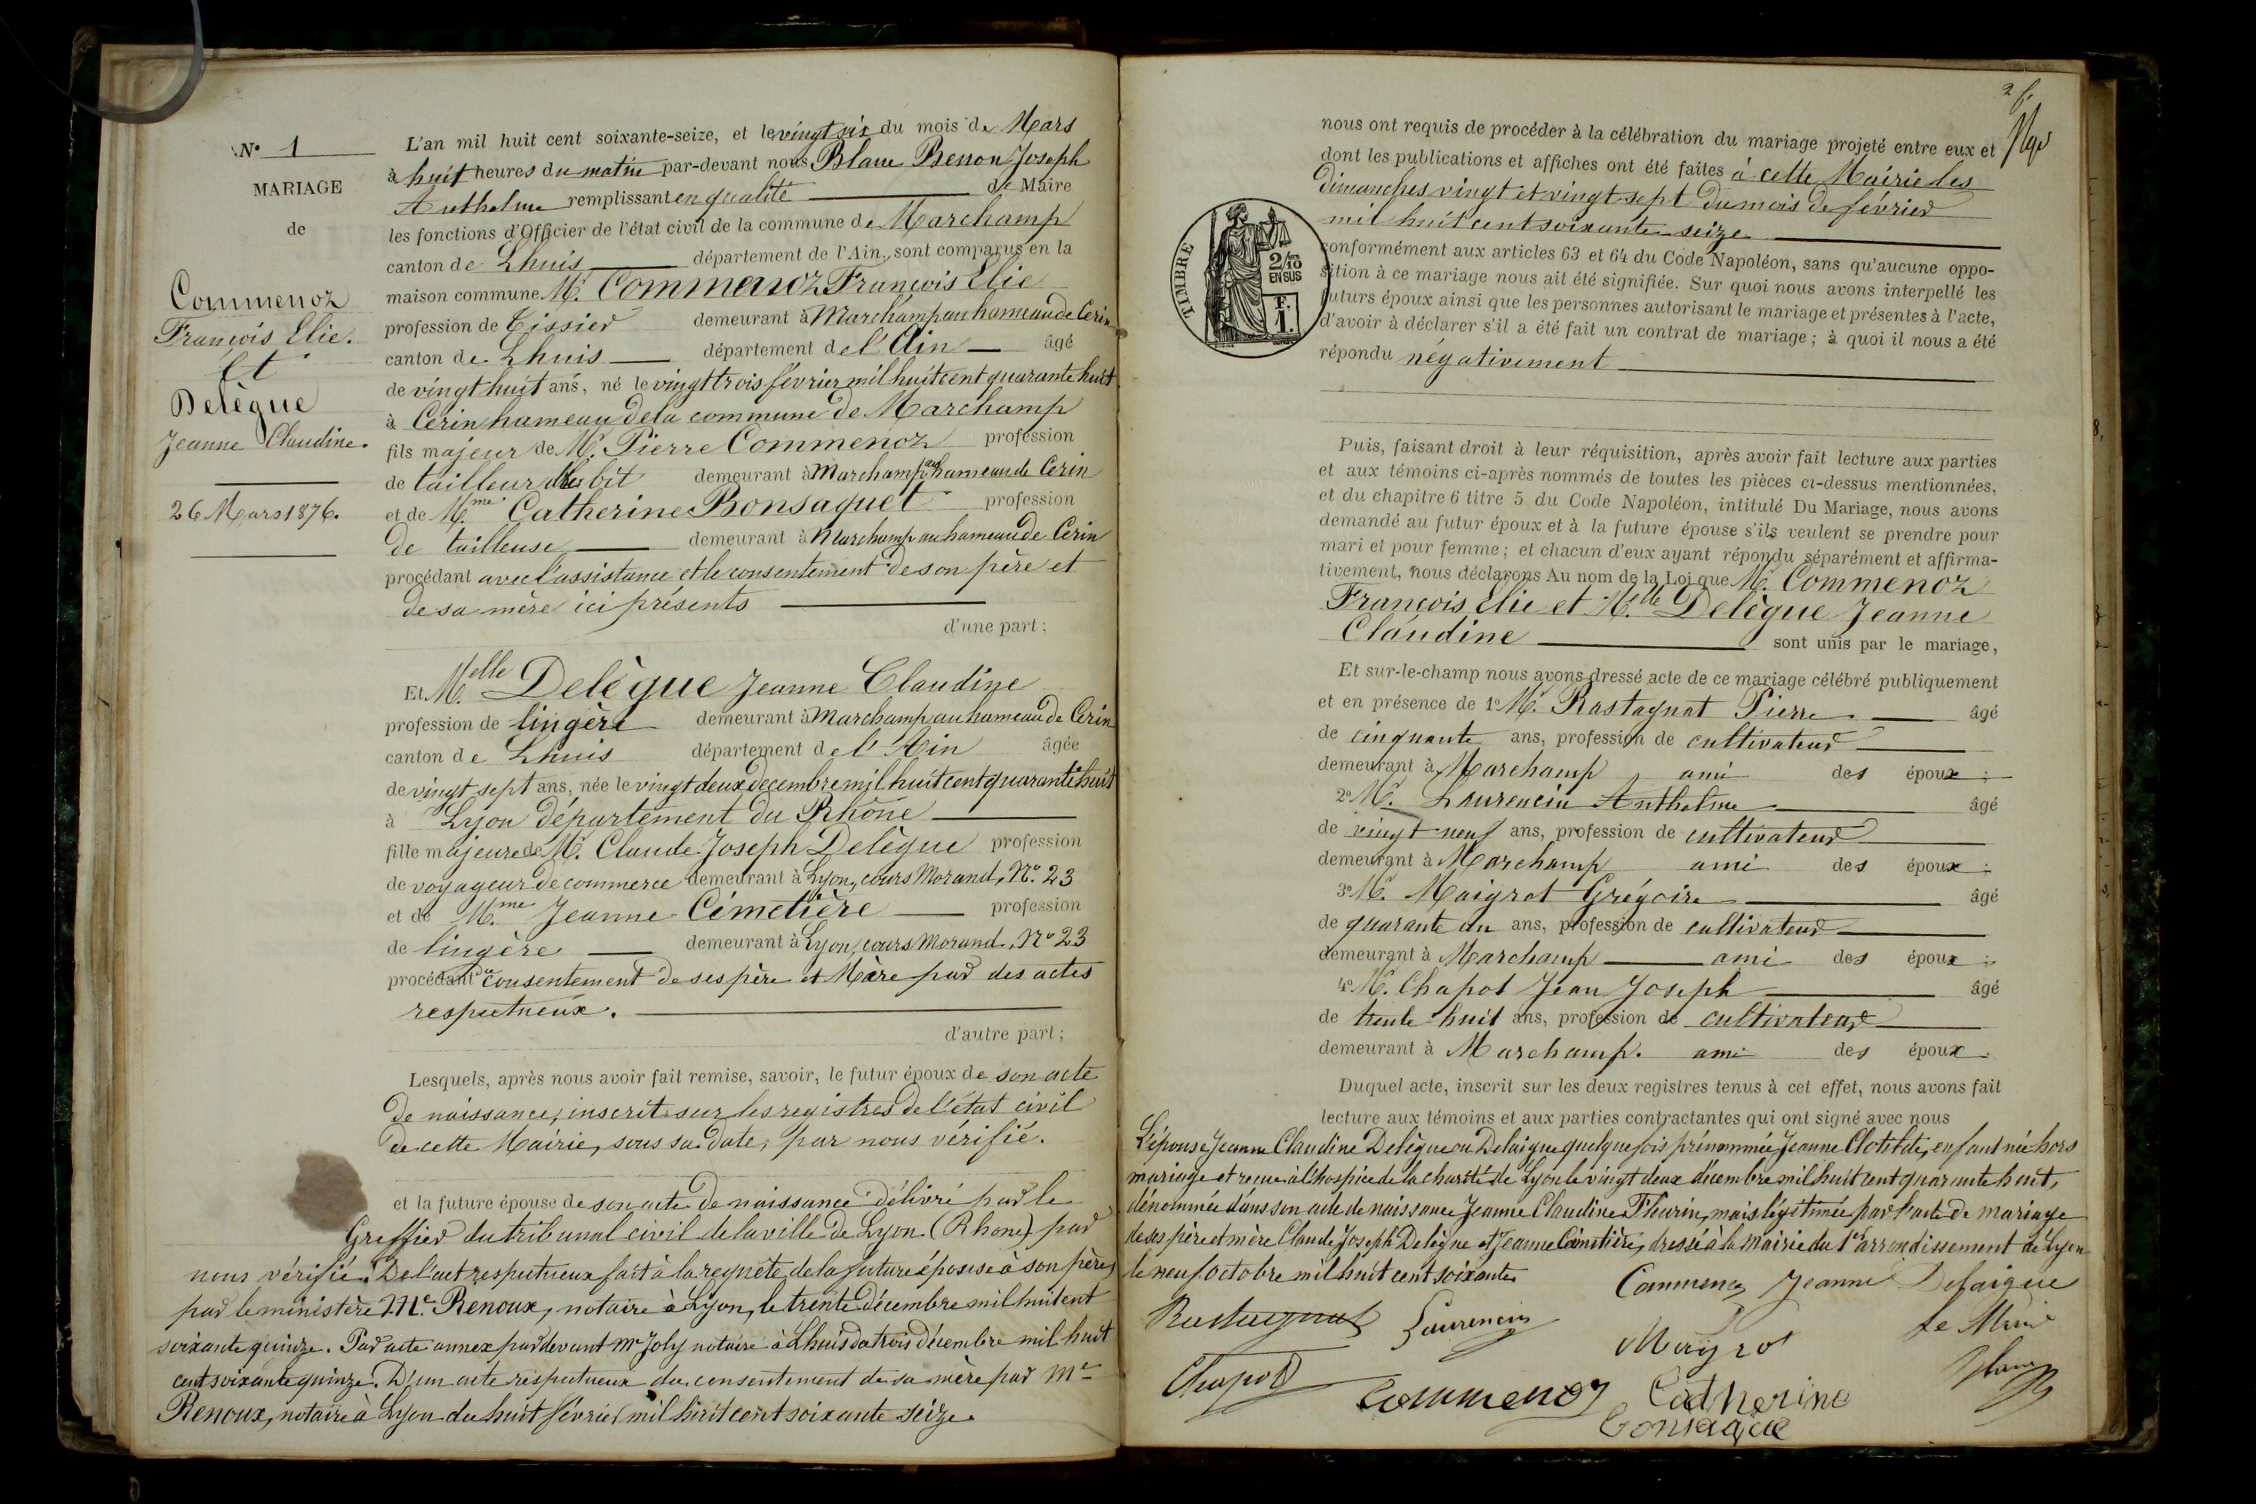 N° 1
MARIAGE
de
Commenoz
François Elie.
Et
Delègue
Jeanne Claudine.
26 Mars 1876.
L'an mil huit cent soixante-seize, et le vingt six du mois de Mars
à huit heures du matin par-devant nous Blanc Benon Joseph
Anthelme remplissant en qualité de Maire
les fonctions d'Officier de l'état civil de la commune de Marchamp
canton de Lhuis département de l'Ain, sont comparus en la
maison commune M. Commenoz François Elie
profession de Tissier demeurant à Marchamp au hameau de Cerin
canton de Lhuis département de l'Ain âgé
de vingt huit ans, né le vingt trois février mil huit cent quarante huit
à Cerin hameau de la commune de Marchamp
fils majeur de M. Pierre Commenoz profession
de tailleur demeurant à Marchamp au hameau de Cerin
et de M.me Catherine Bonsaquet profession
de tailleuse demeurant à Marchamp au hameau de Cerin
procédant avec l'assistance et le consentement de son père et
de sa mère ici présents
d'une part;
Et M.elle Delègue Jeanne Claudine
profession de lingère demeurant à Marchamp au hameau de Cerin
canton de Lhuis département de l'Ain âgée
de vingt sept ans, née le vingt deux decembre mil huit cent quarante huit
à Lyon département du Rhône
fille majeure de M. Claude Joseph Delègue profession
de voyageur de commerce demeurant à Lyon, cours Morand, N° 23
et de M.me Jeanne Cémetière profession
de lingère demeurant à Lyon, cours Morand, N° 23
procédant consentement de ses père et Mère par des actes
respectueux.
d'autre part;
Lesquels, après nous avoir fait remise, savoir, le futur époux de son acte
de naissance, inscrit sur les registres de l'état civil
de cette Mairie, sous sa date, par nous vérifié.
et la future épouse de son acte de naissance délivré par le
Greffier du tribunal civil de la ville de Lyon (Rhone) par
nous vérifié. De l'act respectueux fait à la requête de la future éposse à son père,
par le ministère Me. Renoux, notaire à Lyon, le trente décembre mil huit cent
soixante quinze. Par acte annex par devant Me Joly notaire à Lhuis du trois décembre mil huit
cent soixante quinze. D'un acte respectueux du consentement de sa mère par Me
Renoux, notaire à Lyon du huit février mil huit cent soixante seize.
2 f.
nous ont requis de procéder à la célébration du mariage projeté entre eux et
dont les publications et affiches ont été faites à cette Mairie les
dimanches vingt et vingt sept du mois de février
mil huit cent soixante seize
TIMBRE
2/10
EN SUS
F.
1.
conformément aux articles 63 et 64 du Code Napoléon, sans qu'aucune oppo-
sition à ce mariage nous ait été signifiée. Sur quoi nous avons interpellé les
futurs époux ainsi que les personnes autorisant le mariage et présentes à l'acte,
d'avoir à déclarer s'il a été fait un contrat de mariage; à quoi il nous a été
répondu négativement
Puis, faisant droit à leur réquisition, après avoir fait lecture aux parties
et aux témoins ci-après nommés de toutes les pièces ci-dessus mentionnées,
et du chapitre 6 titre 5 du Code Napoléon, intitulé Du Mariage, nous avons
demandé au futur époux et à la future épouse s'ils veulent se prendre pour
mari et pour femme; et chacun d'eux ayant répondu séparément et affirma-
tivement, nous déclarons Au nom de la Loi que M. Commenoz
François Elie et M.lle Delègue Jeanne
Claudine sont unis par le mariage,
Et sur-le-champ nous avons dressé acte de ce mariage célébré publiquement
et en présence de 1° M. Rastagnat Pierre âgé
de cinquante ans, profession de cultivateur
demeurant à Marchamp ami des époux;
2° M. Laurencin Anthelme âgé
de vingt neuf ans, profession de cultivateur
demeurant à Marchamp ami des époux;
3° M. Maigrot Grégoire âgé
de quarante un ans, profession de cultivateur
demeurant à Marchamp ami des époux;
4° M. Chapot Jean Joseph âgé
de trente huit ans, profession de cultivateur
demeurant à Marchamp. ami des époux.
Duquel acte, inscrit sur les deux registres tenus à cet effet, nous avons fait
lecture aux témoins et aux parties contractantes qui ont signé avec nous
L'épouse Jeanne Claudine Delègue ou Delaigue quelquefois prénommée Jeanne Clotilde, enfant née hors
mariage et reçue à l'hospice de la charité de Lyon le vingt deux décembre mil huit cent quarante huit,
dénommée dans son acte de naissance Jeanne Claudine Fleurin, mais légitimée par l'acte de mariage
de ses père et mère Claude Joseph Delègue et Jeanne Cémetière, dressé à la mairie du 1er arrondissement de Lyon
le neuf octobre mil huit cent soixante.
Commenoz Jeanne Delaigue
Rastagnat Laurencin Maigrot le Maire
Chapot Commenoz Catherine Blanc
Bonsaque